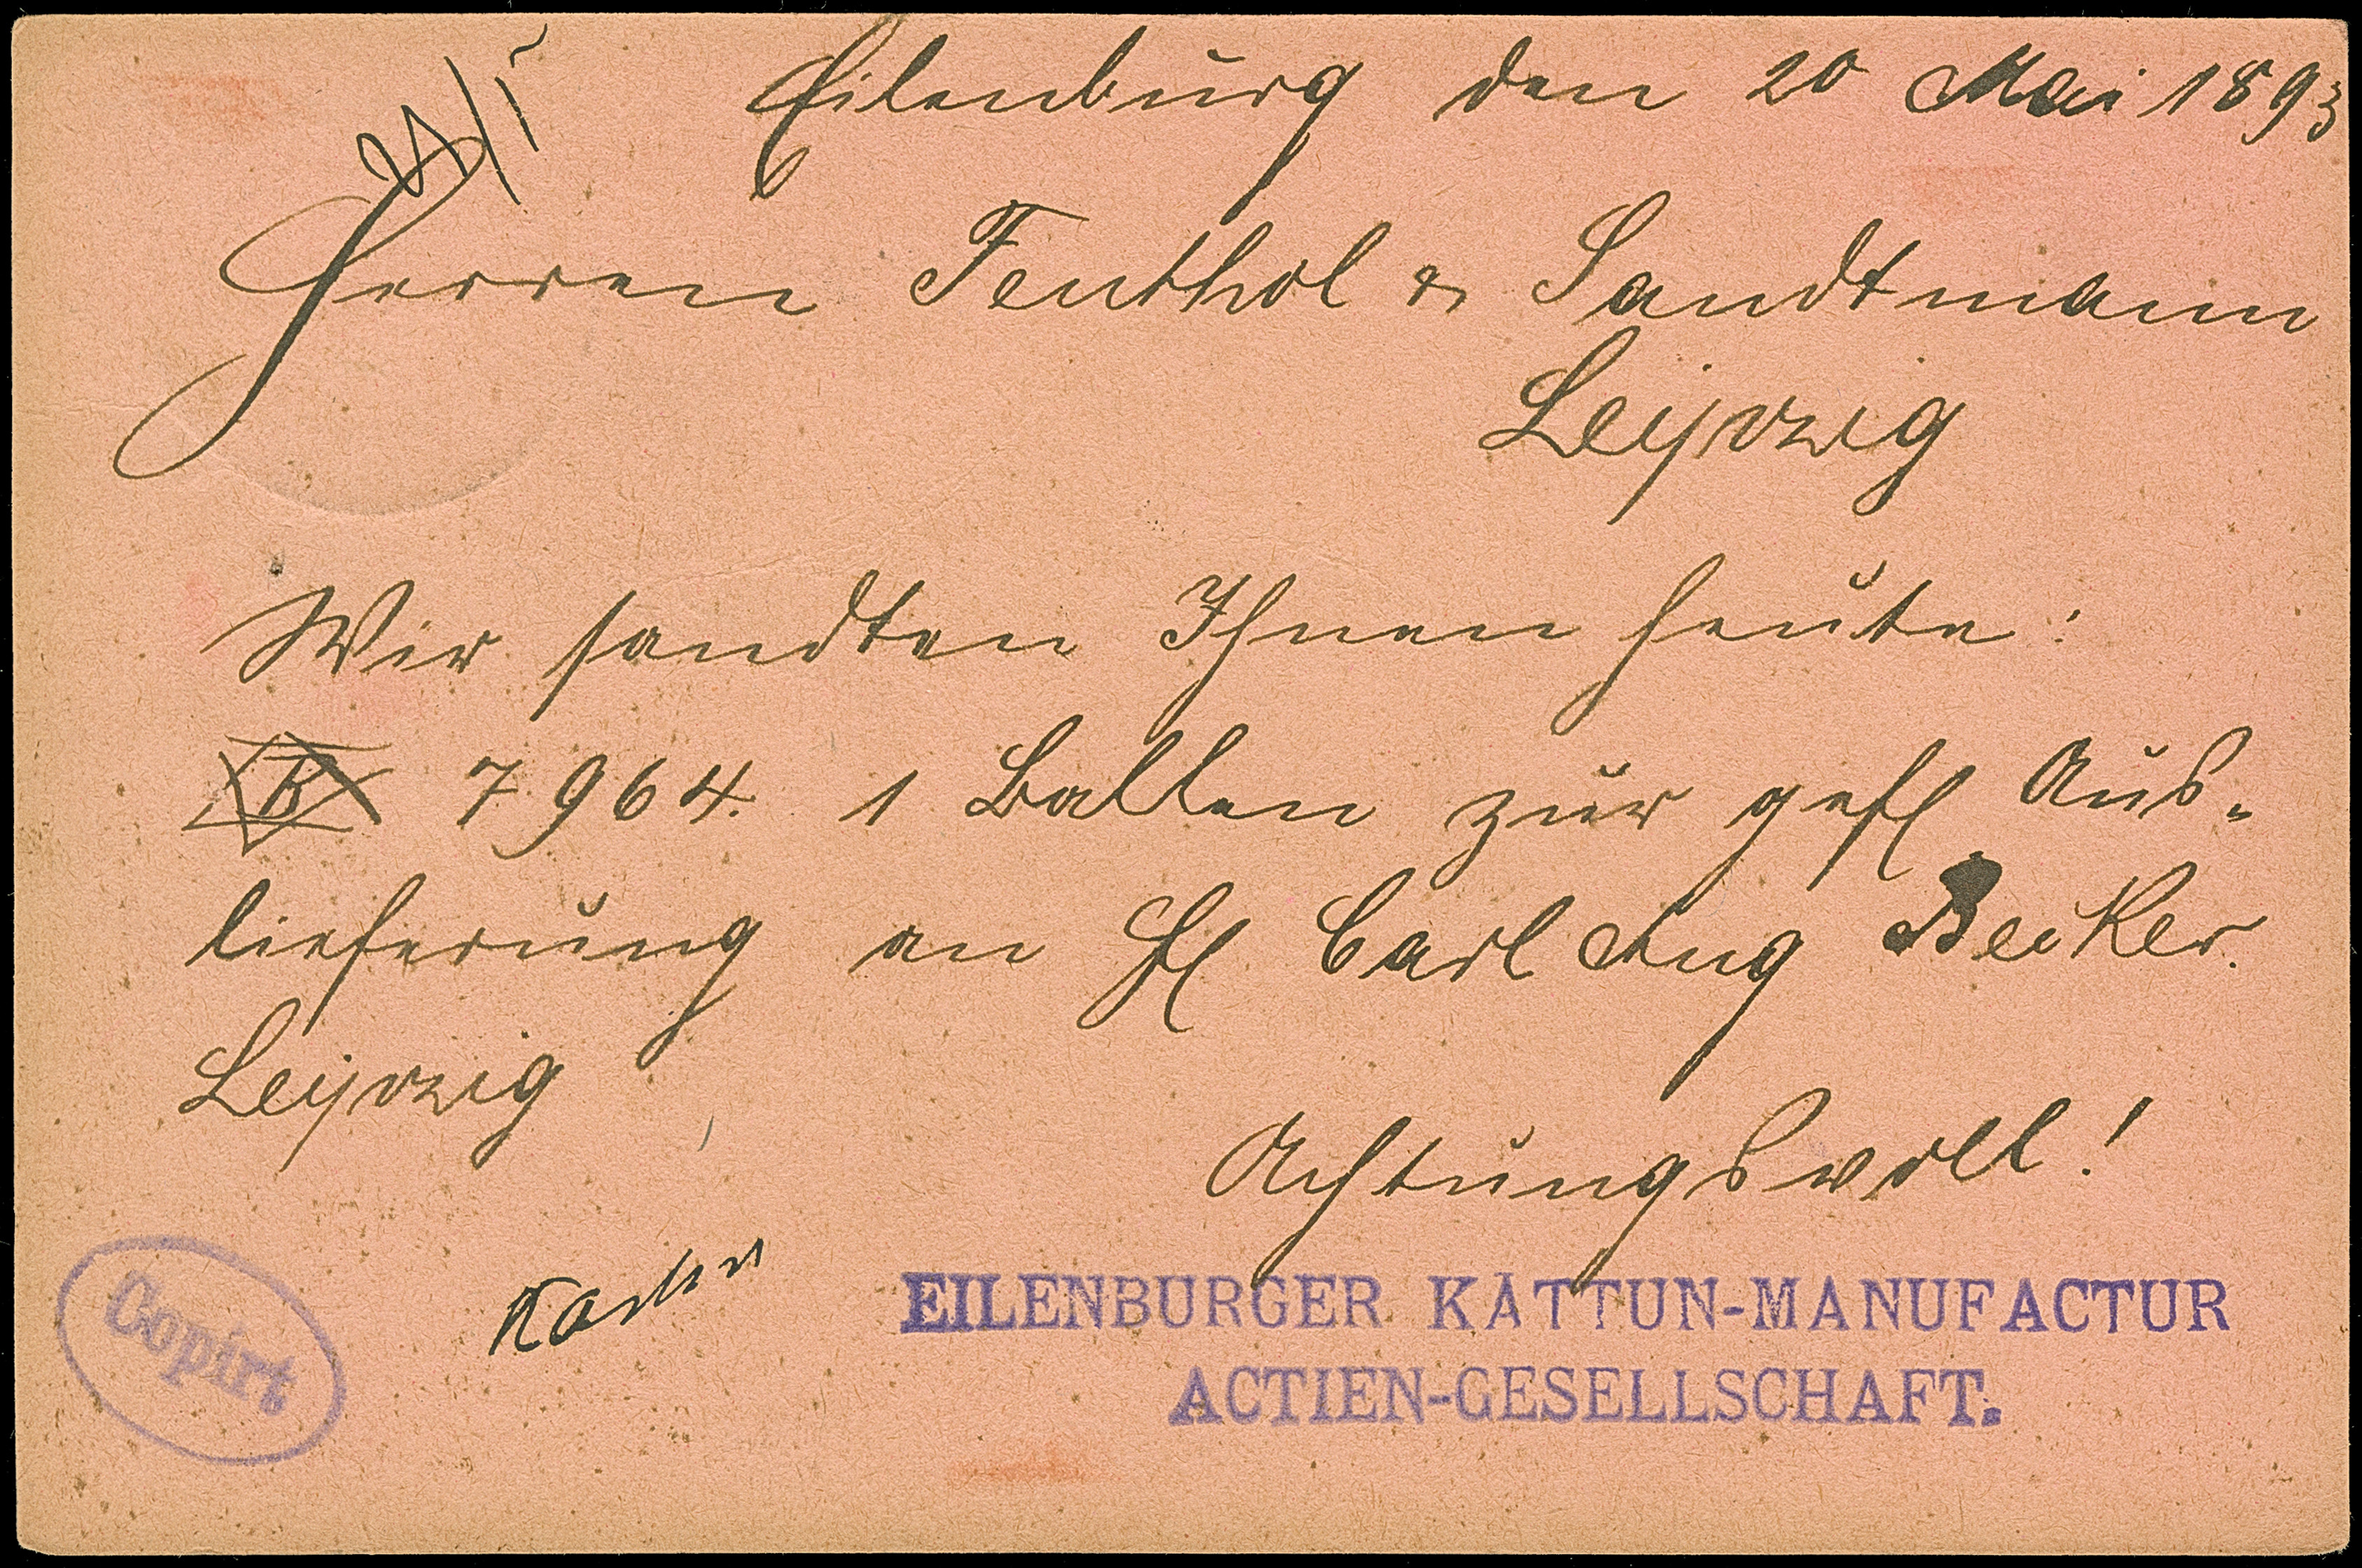 21/5
Eilenburg den 20 Mai 1893
Herren Tenthol & Sandtmann
Leipzig
Wir sandten Ihnen heute:
B 7964. 1 Ballen zur gefl Aus-
lieferung an H Carl Aug Becker.
Leipzig
Achtungsvoll!
Copirt
EILENBURGER KATTUN-MANUFACTUR
ACTIEN-GESELLSCHAFT.